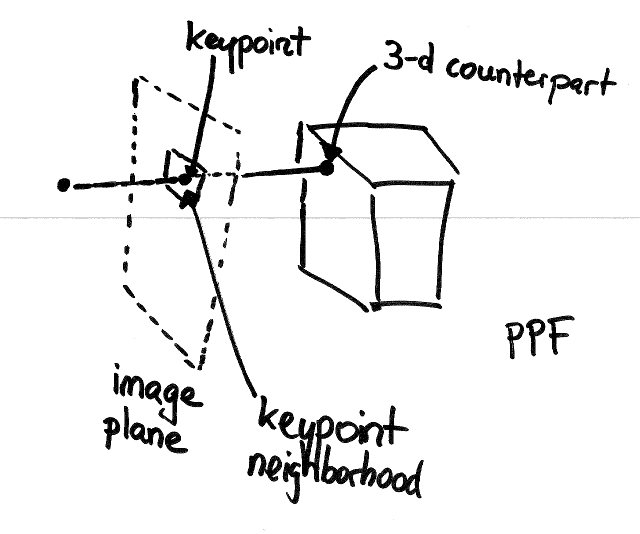 keypoint
3-d counterpart
PPF
image
plane
keypoint
neighborhood